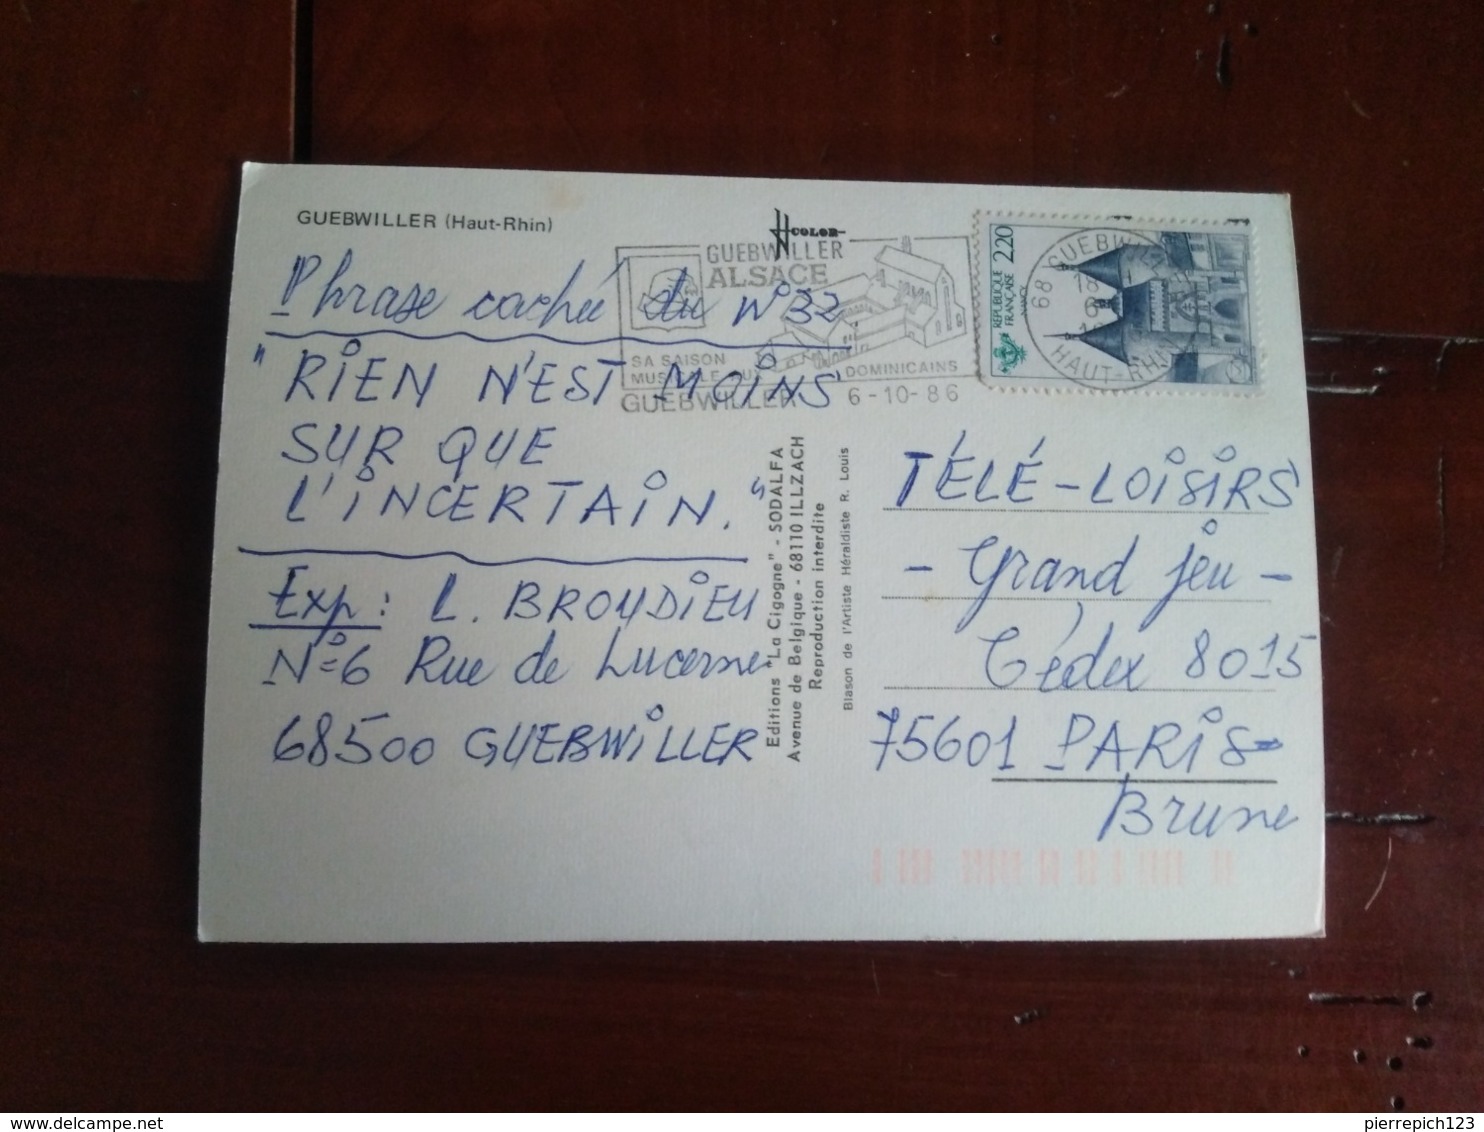 GUEBWILLER (Haut-Rhin)
COLOR
GUEBWILLER
ALSACE
SA SAISON
DOMINICAINS
GUEBWILLER 6-10-86
2,20
REPUBLIQUE
FRANÇAISE
NANCY
68 GUEBWILLER
18
6
HAUT-RHIN
Phrase cachée du N°32
"RIEN N'EST MOINS
SUR QUE
L'INCERTAIN."
Exp: L. BROUDIEU
N°=6 Rue de Lucerne
68500 GUEBWILLER
Editions "La Cigogne" - SODALFA
Avenue de Belgique - 68110 ILLZACH
Reproduction interdite
Blason de l'Artiste Héraldiste R. Louis
TÉLÉ-LOISIRS
- Grand jeu -
Cédex 8015
75601 PARIS-
Brune
www.delcampe.net
pierrepich123